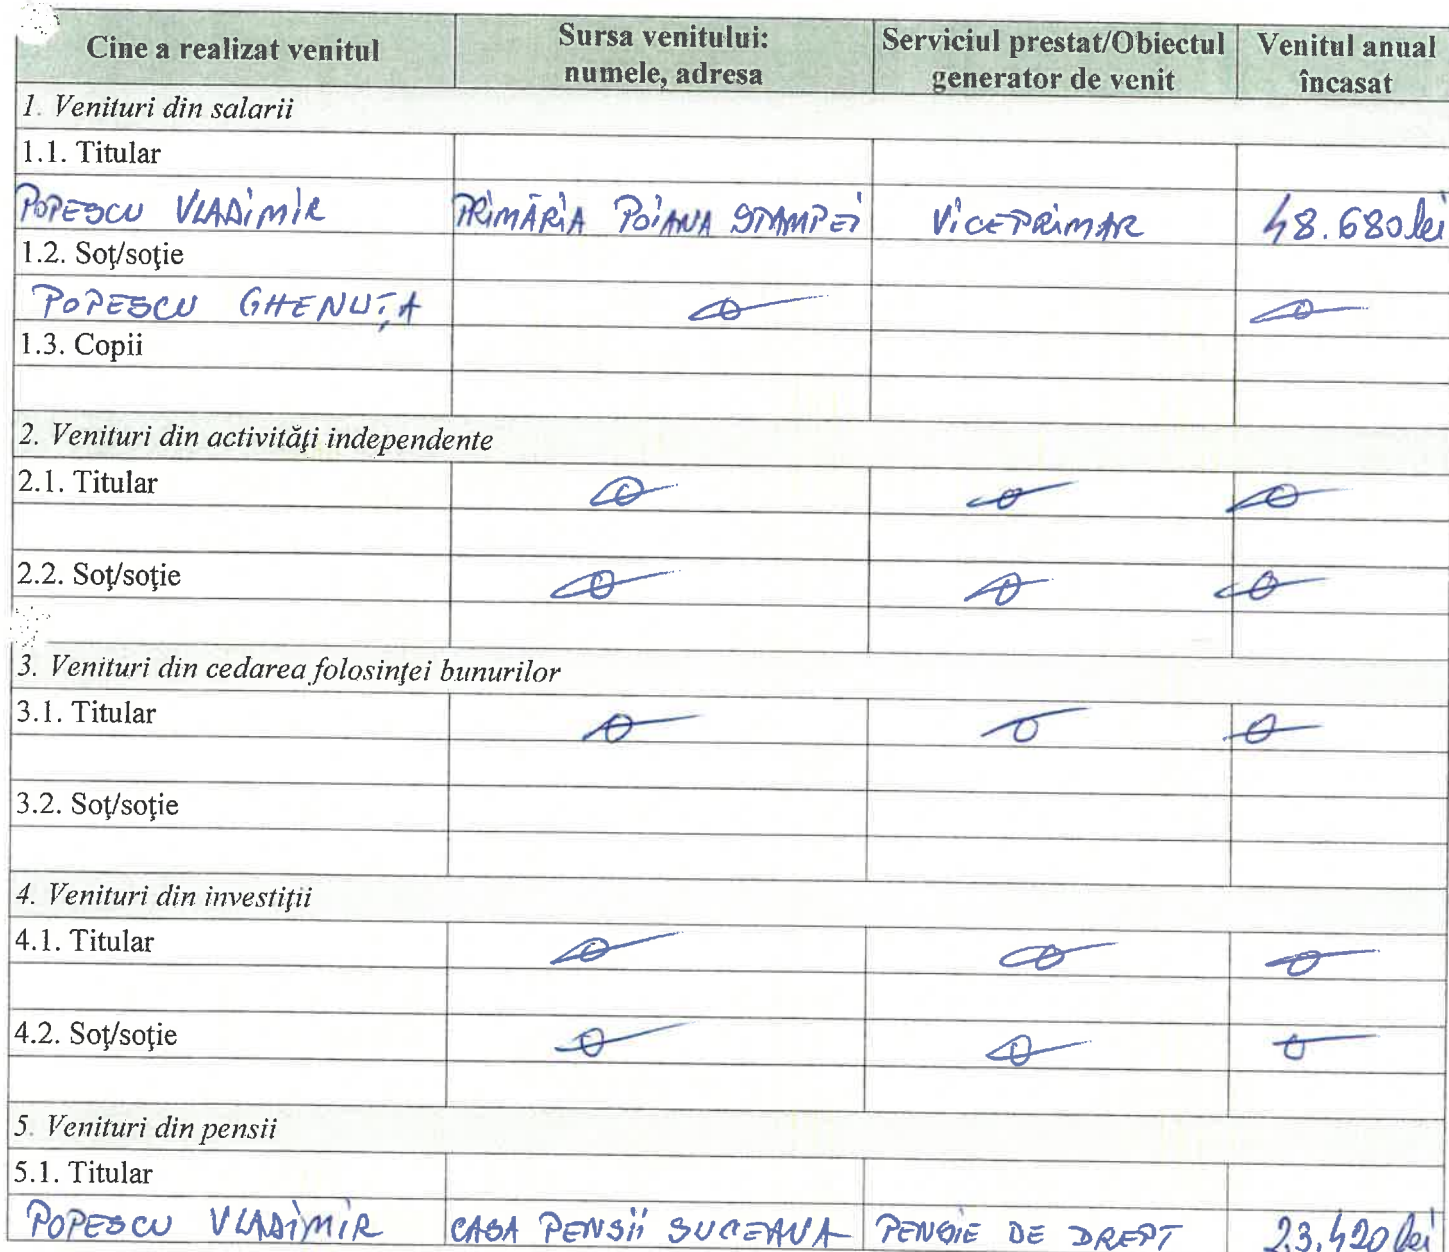 Cine a realizat venitul
Sursa venitului:
numele, adresa
Serviciul prestat/Obiectul
generator de venit
Venitul anual
încasat
1. Venituri din salarii
1.1. Titular
POPESCU VLADIMIR PRIMĂRIA POIANA STAMPEI VICEPRIMAR 48.680 lei
1.2. Soţ/soţie
POPESCU GHENUȚA
1.3. Copii
2. Venituri din activităţi independente
2.1. Titular
2.2. Soţ/soţie
3. Venituri din cedarea folosinţei bunurilor
3.1. Titular
3.2. Soţ/soţie
4. Venituri din investiţii
4.1. Titular
4.2. Soţ/soţie
5. Venituri din pensii
5.1. Titular
POPESCU VLADIMIR CASA PENSII SUCEAVA PENSIE DE DREPT 23.420 lei